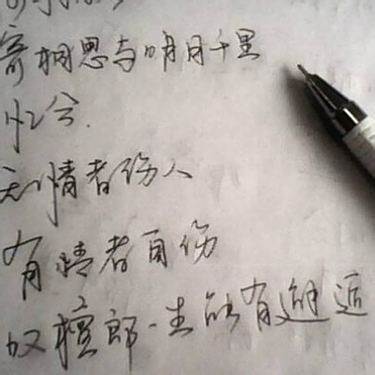 寄相思与明月千里
忆兮.
无情者伤人
有情者自伤
檀郎一生有邂逅